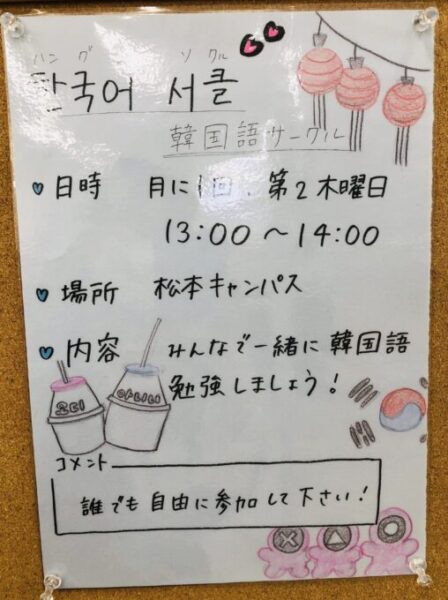 ハング ソクル
한국어 서클
韓国語サークル
日時 月に1回、第2木曜日
13:00～14:00
場所 松本キャンパス
内容 みんなで一緒に韓国語
勉強しましょう!
오디
コメント
誰でも自由に参加して下さい!